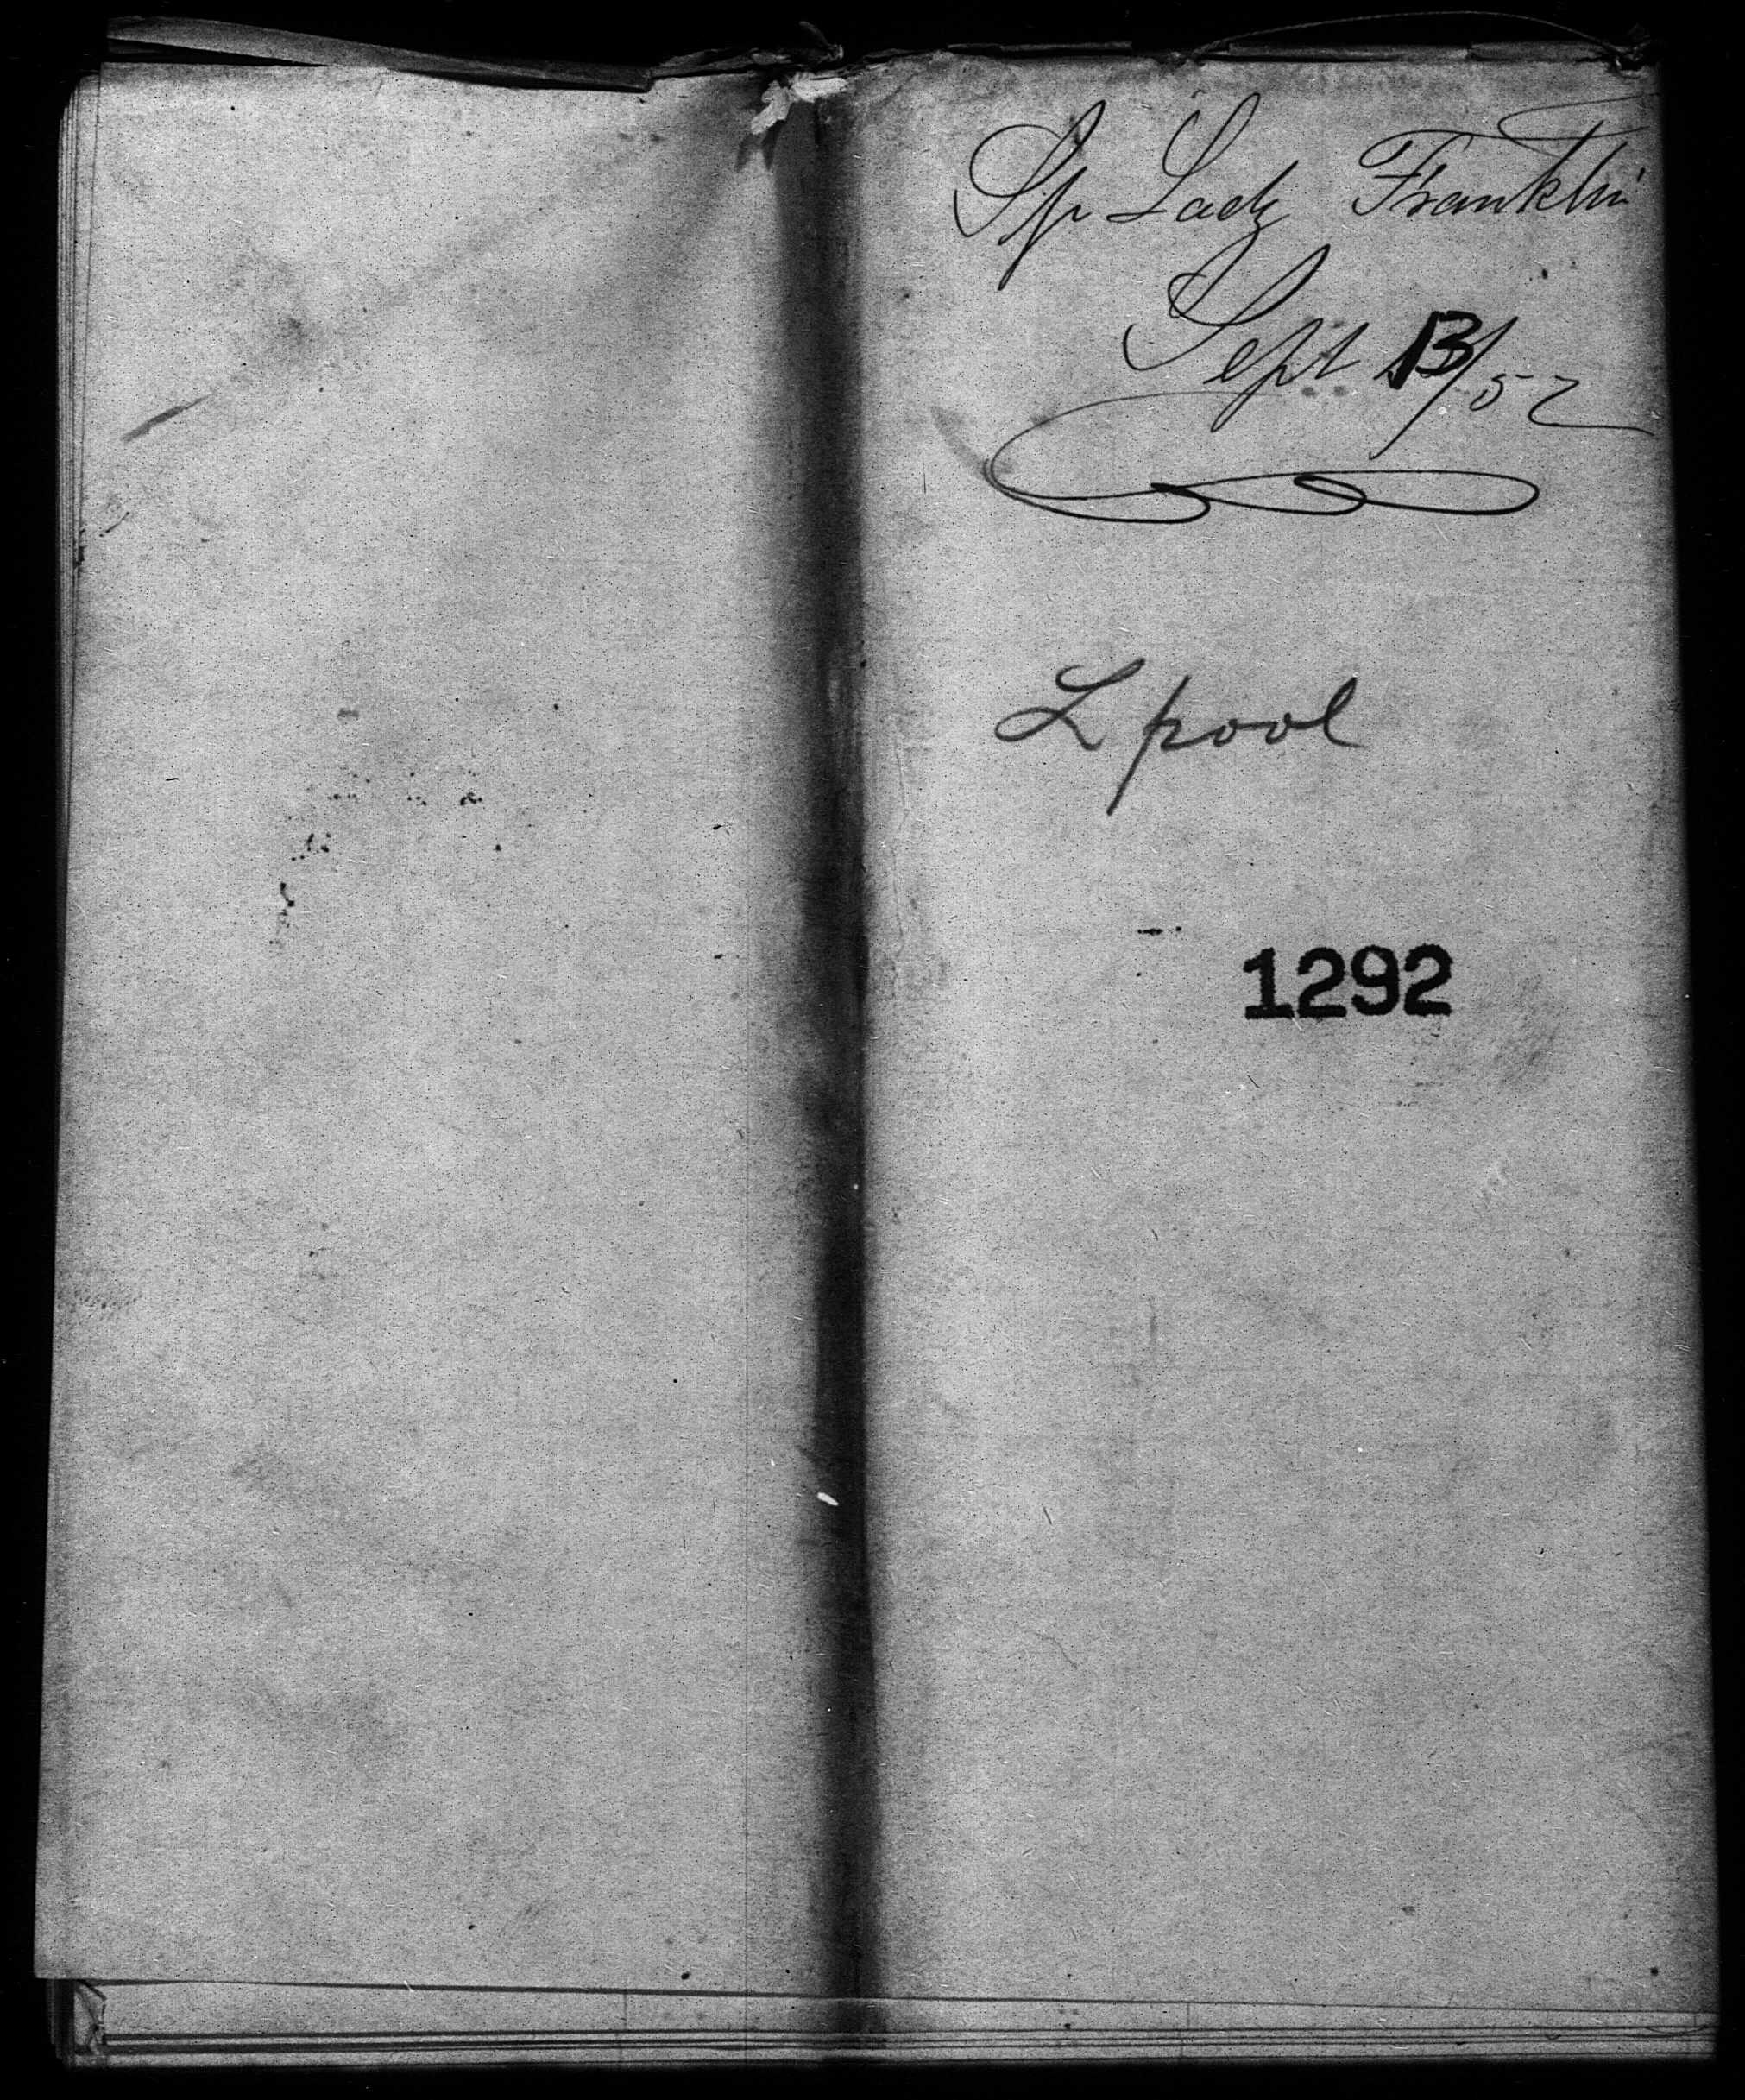 Sp Lady Franklin
Sept 13/52
L pool
1292